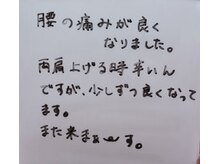 腰の痛みが良く
なりました。
両肩上げる時辛いん
ですが、少しずつ良くなって
ます。
また来まぁーす。